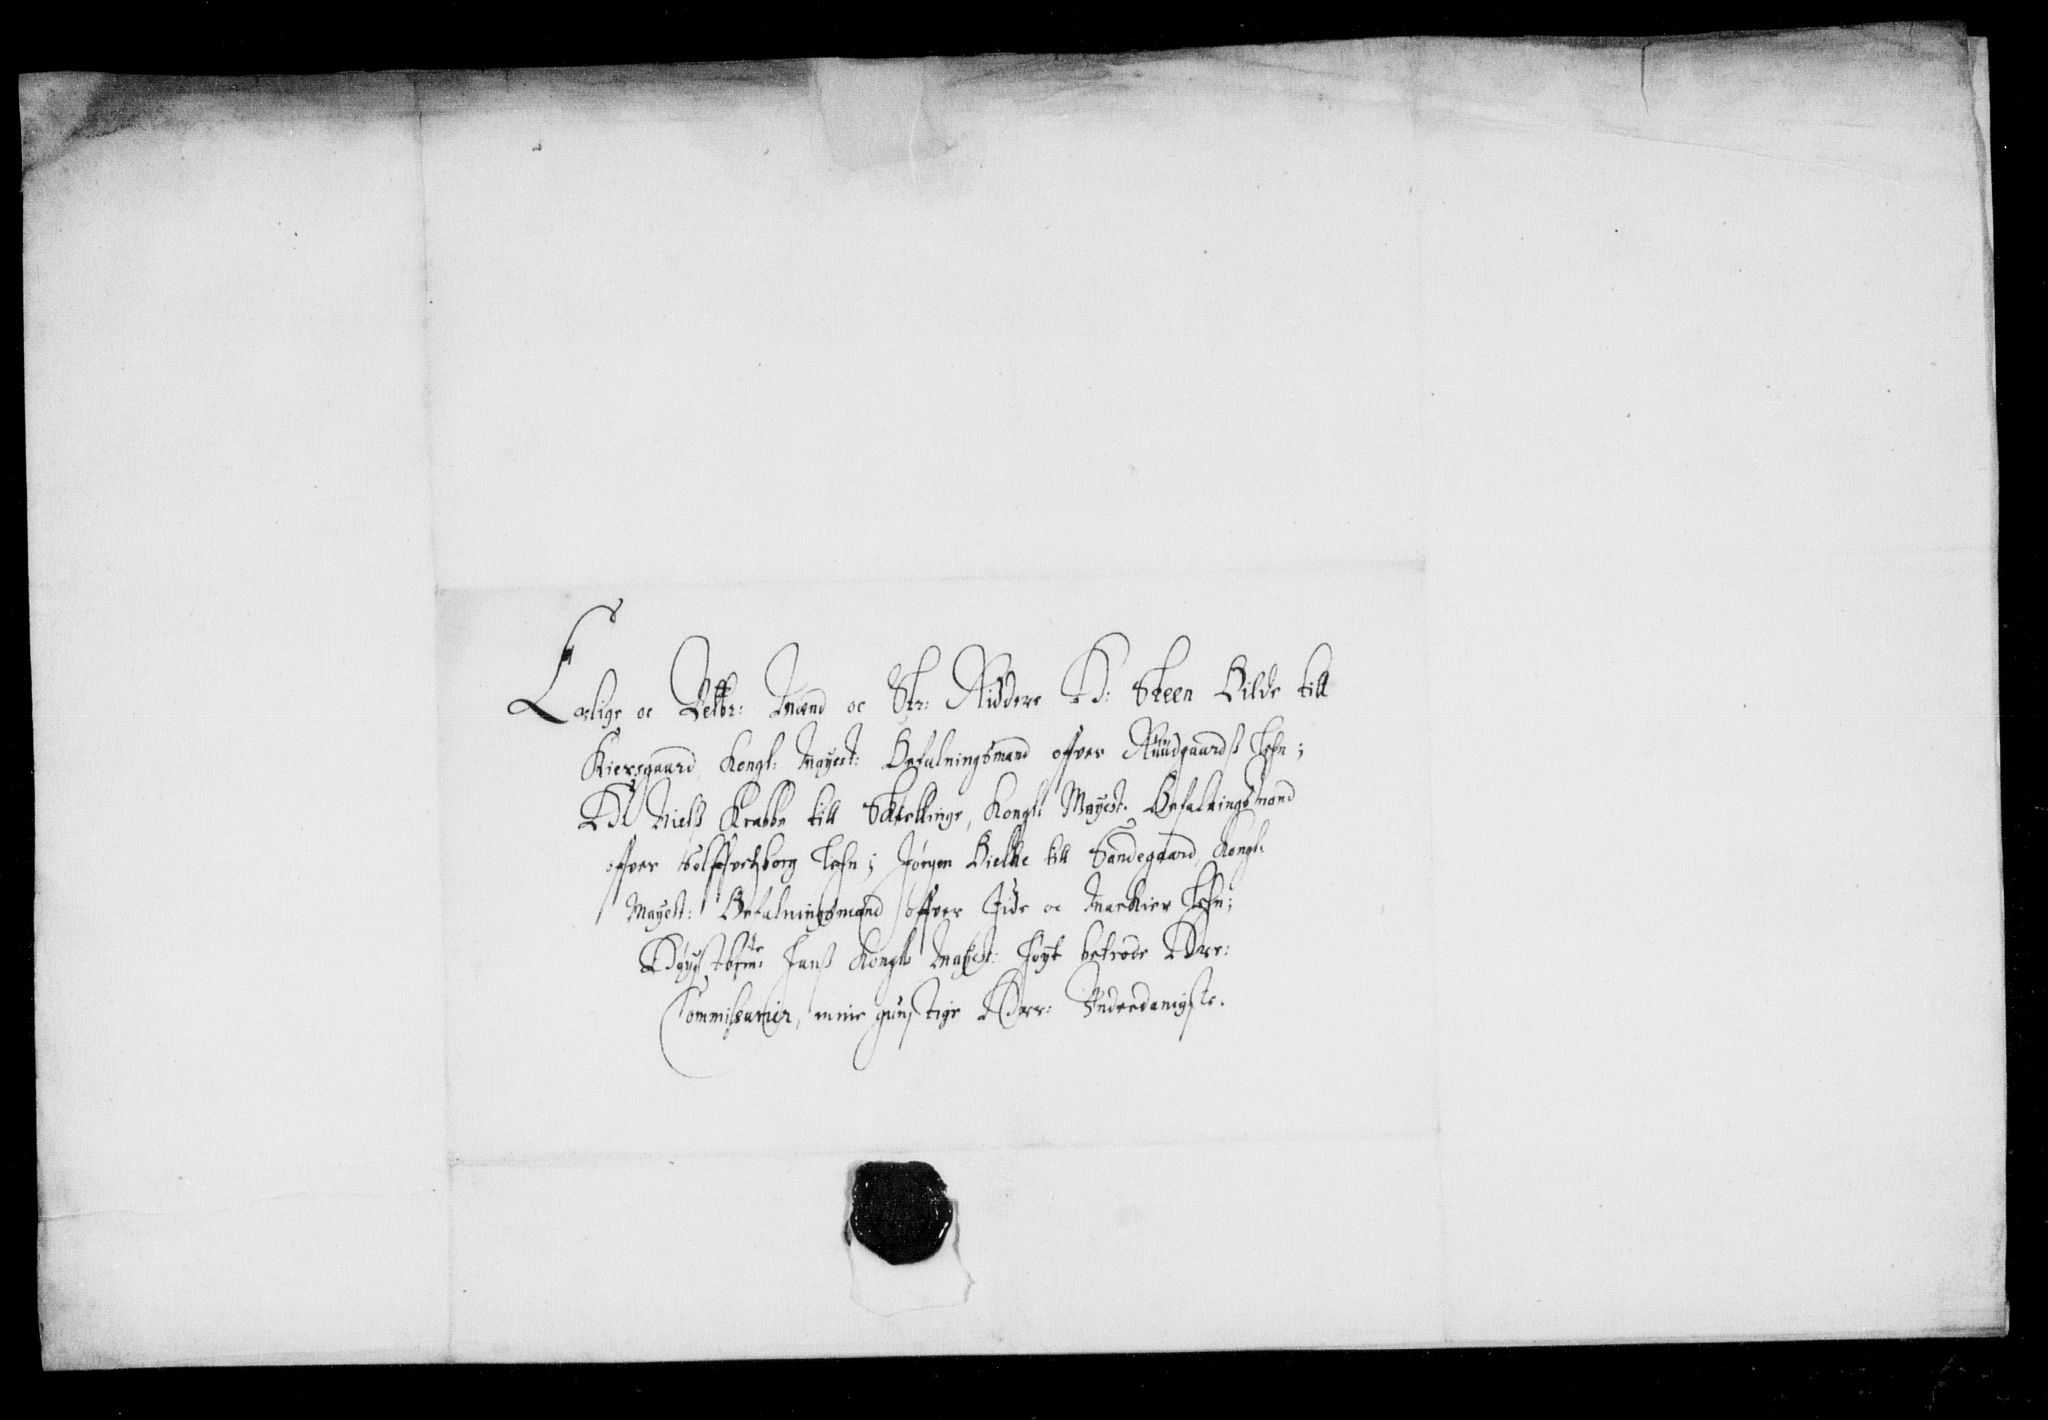 Erlige oc Velbr: Mænd oc Str: Riddere H: Steen Bilde till
Kiersgaard, Kongl: Mayest: Befalningsmand offver Ruudgaardß Lehn;
H: Nielß Krabbe till Skiellinge, Kongl: Mayest: Befalningsmand
offver Sølffvitzborg Lehn; Jørgen Bielke till Sandegaard, Kongl:
Mayest: Befalningsmand offver Jide oc Marckier Lehn;
Høyst bem:te Hanß Kongl: Mayest: Høyt betrode Herr:
Commissarier, mine gunstige Herr: Underdanigste.